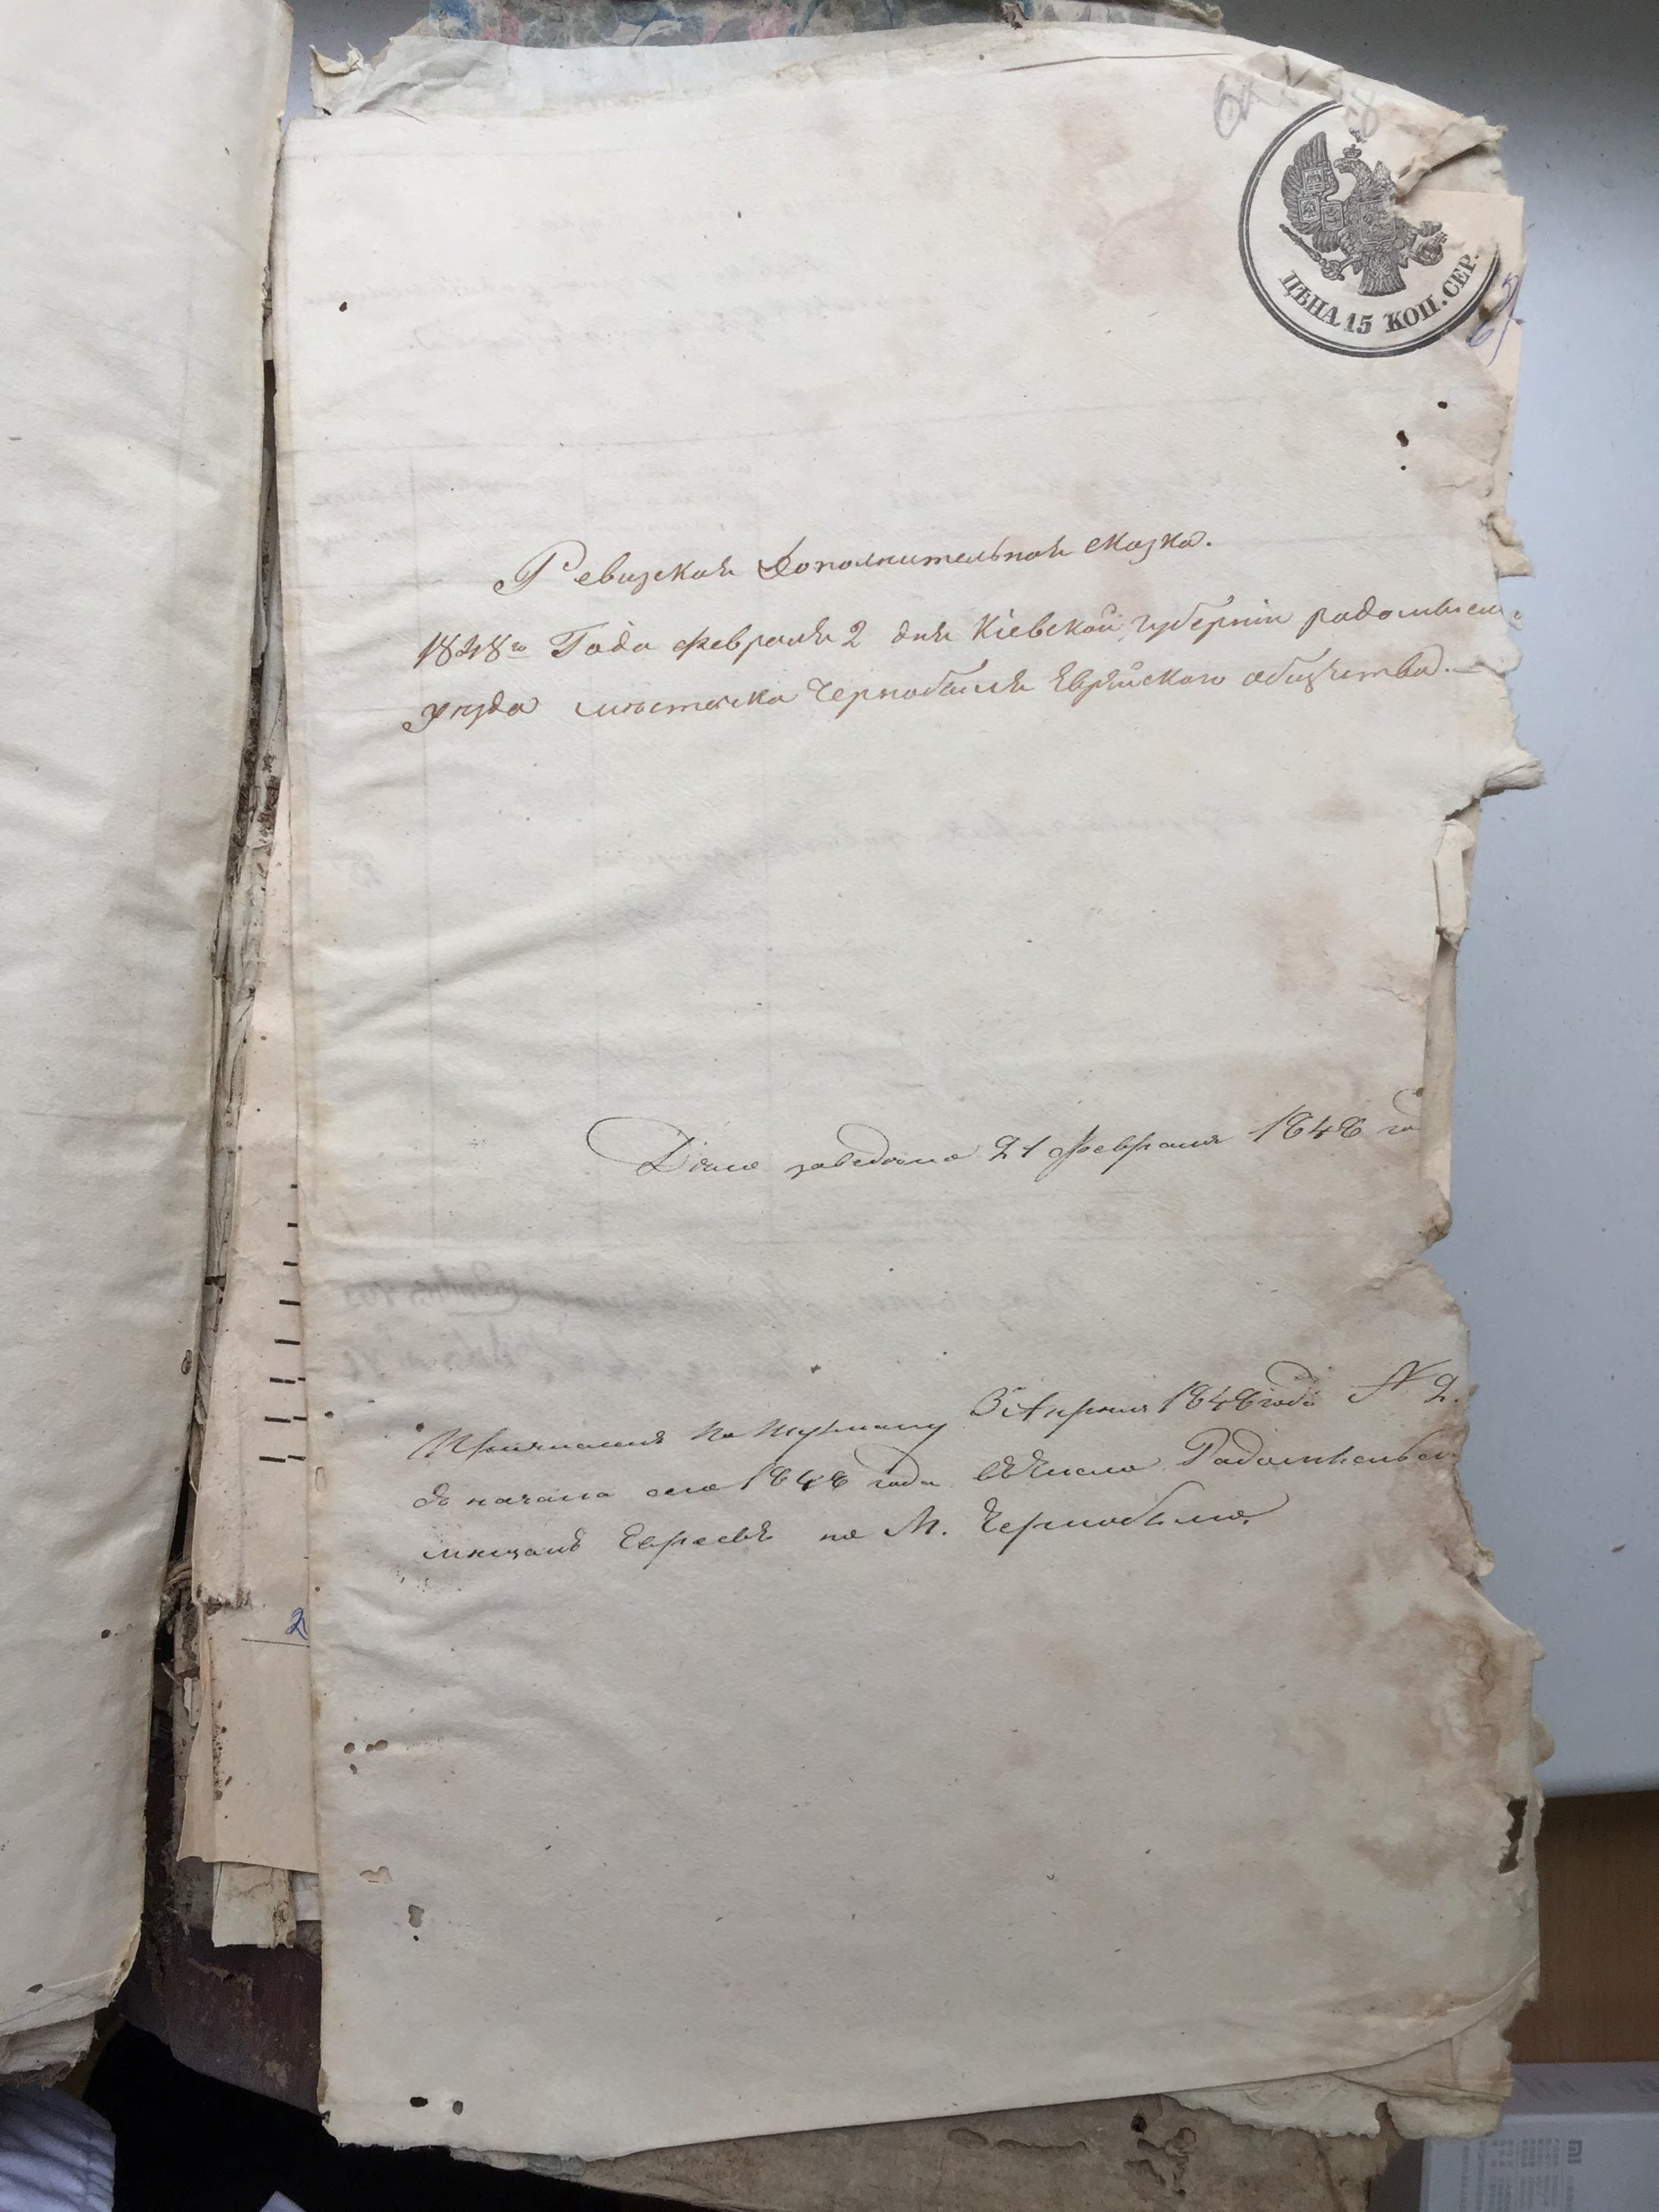 ЦѢНА 15 КОП. СЕР.
Ревизская Дополнительная сказка.
1848го Года февраля 2 дня Кіевской губерніи радомысл
уезда местечка Чернобыля Еврейского общества.
Дело заведено 21 февраля 1848 го
Причислен По 5 Апреля 1848 года № 2.
С начала сего 1848 года в число Радомысльс
мещанъ Евреевъ по М. Чернобылю.
2